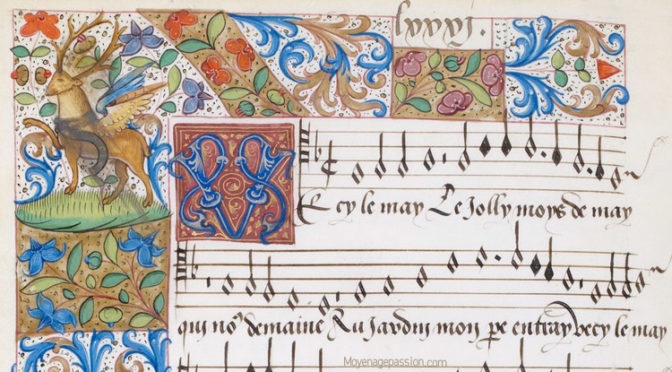 lxxxj.
VEcy le may Le Jolly moys de may
qui noꝰ demaine Au Jardin mon pe entray vecy le may
Moyenagepassion.com